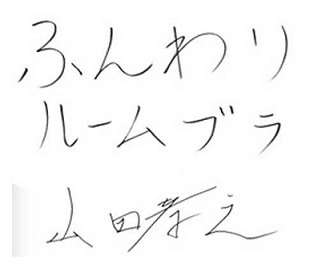 ふんわり
ルームブラ
山田孝之